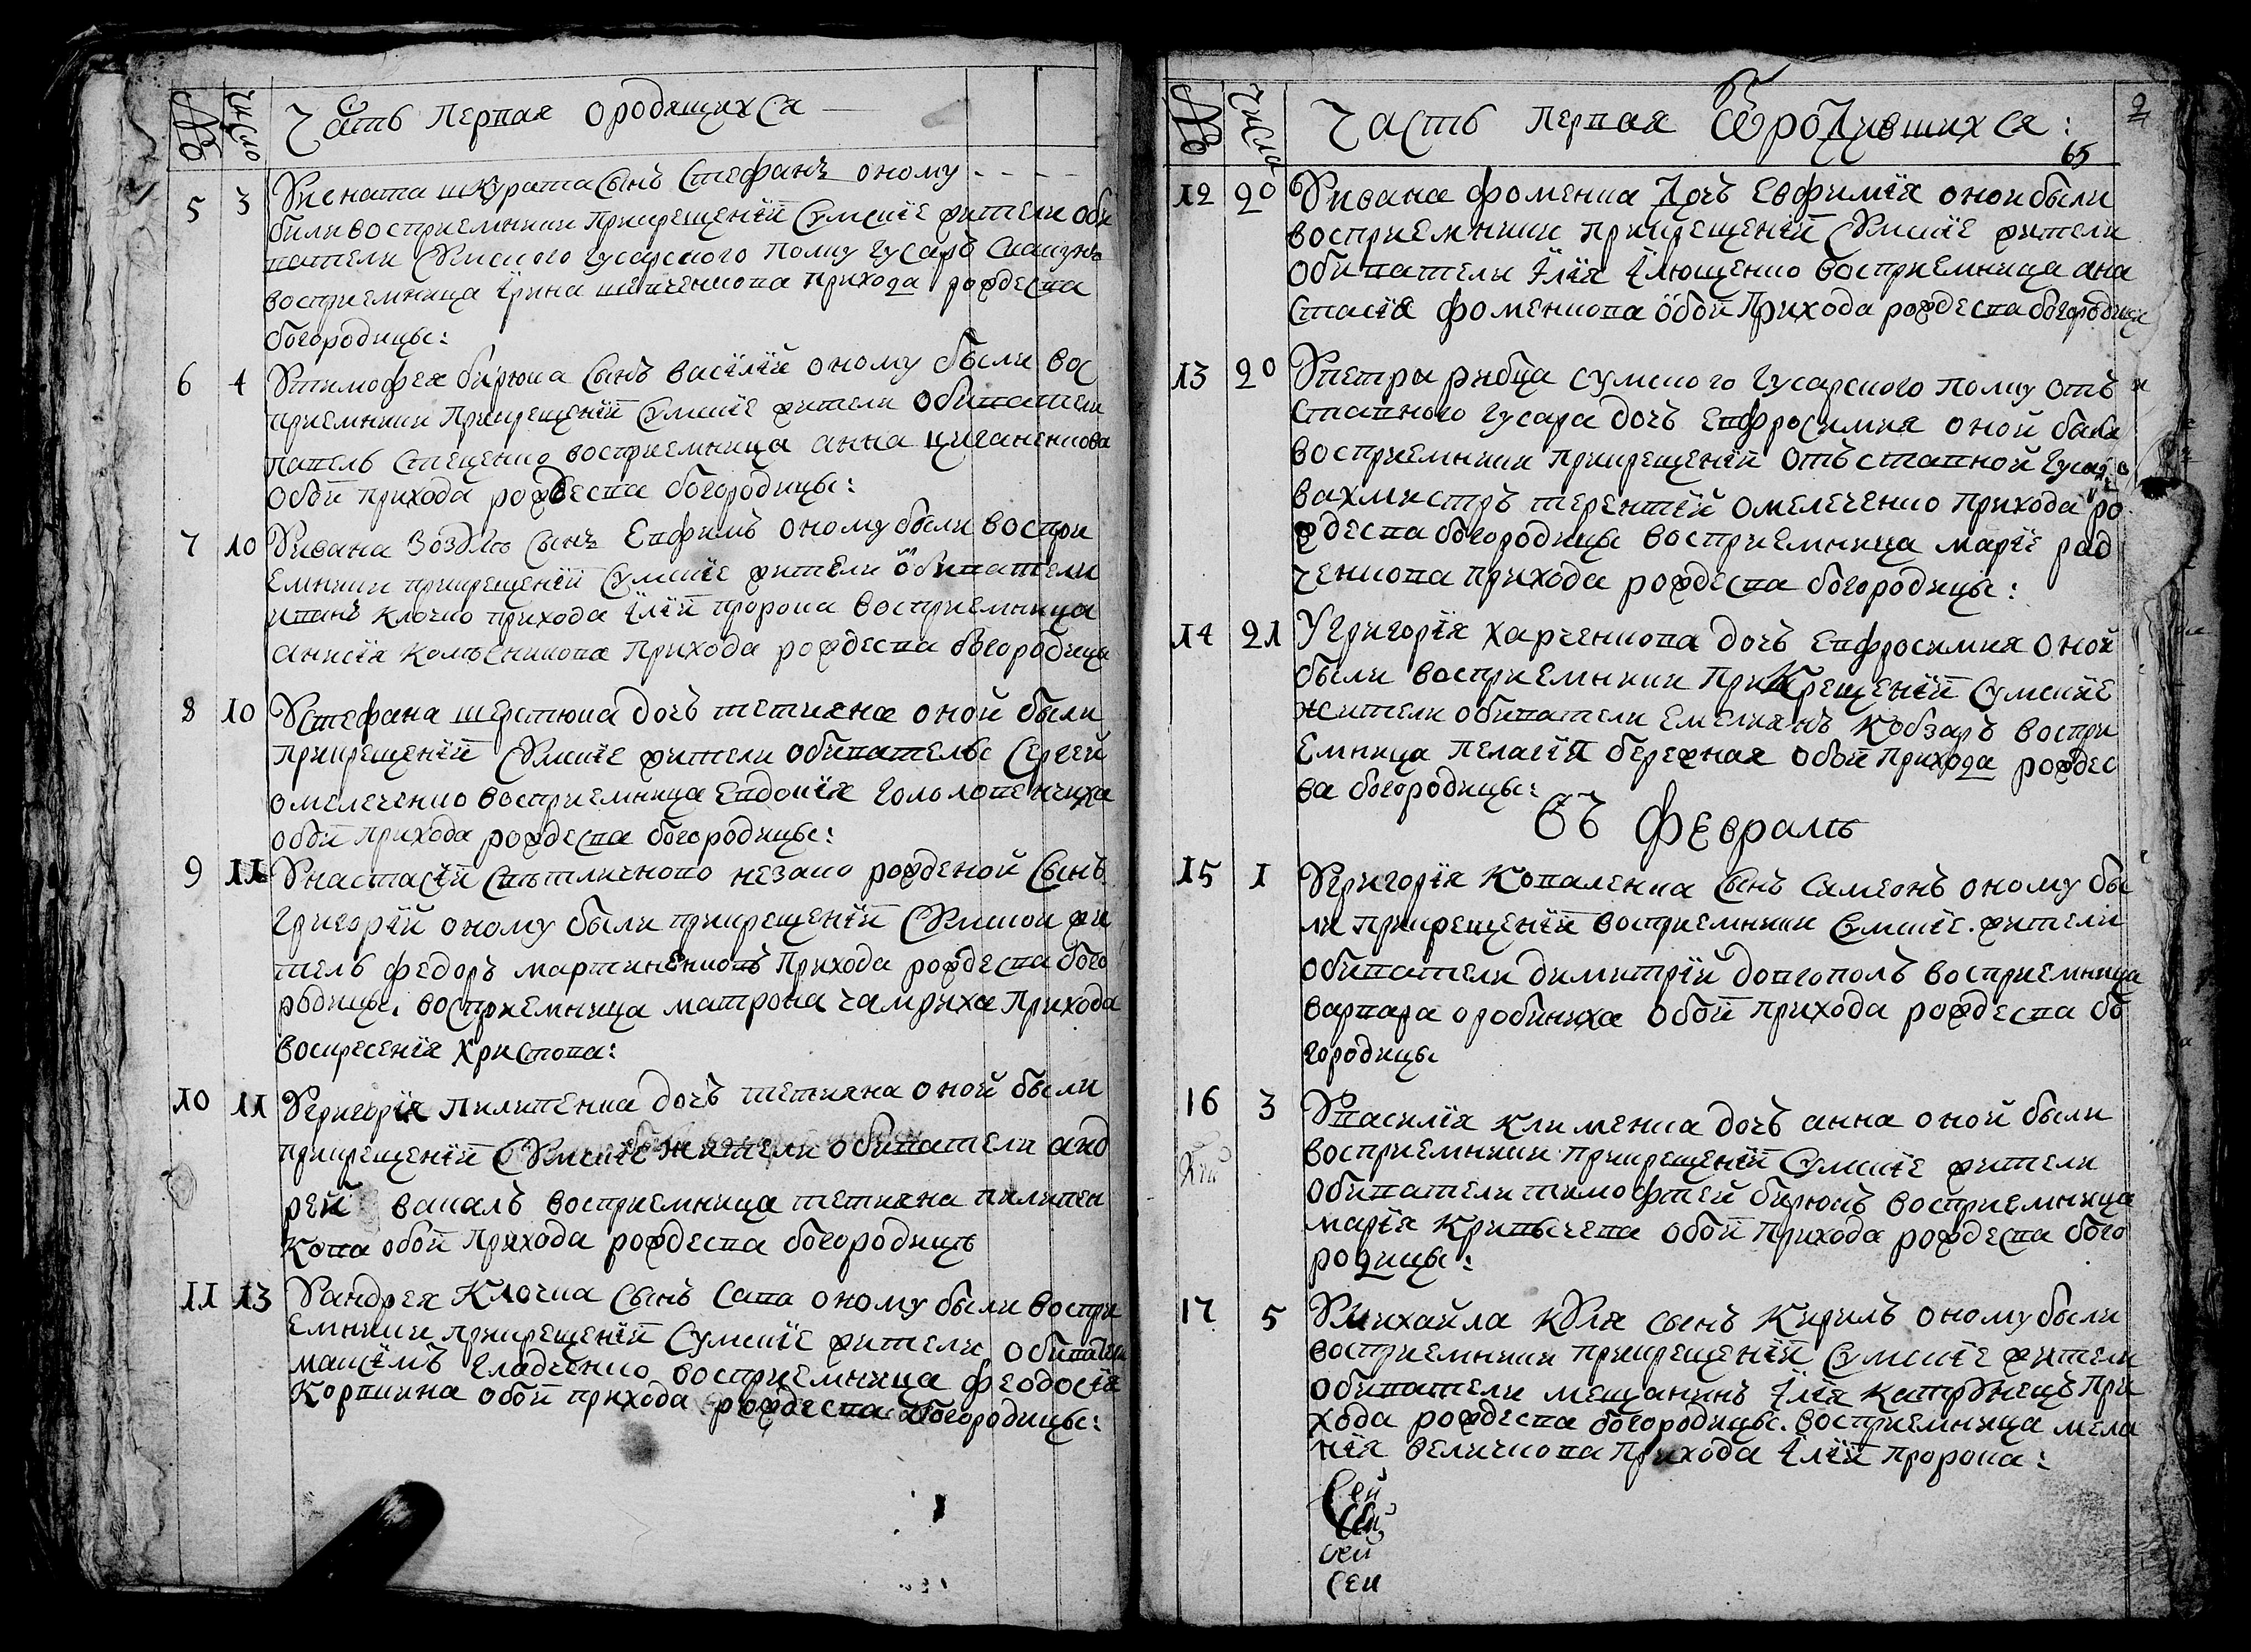 № число Часть первая ородящихся
5 3 Уигната шкурата сынъ стефанъ оному
били восприемники прикрещенїи Сумскїе жители обы
ватели Сумского гусарского полку гусаръ
восприемница Їрина прихода рождества
богородицы:
6 4 Утимофея бирюка сынъ василїй оному были вос
приемники прикрещенїи Сумскїе жители обыватели
павелъ стеценко восприемница анна циганенкова
обои прихода рождества богородицы:
7 10 Уивана сынъ Евфимъ оному были воспри
емники прикрещенїи Сумскїе жители обыватели
иванъ клочко прихода Їлїи пророка восприемница
анисїя колесникова прихода рождества богородицы
8 10 Устефана шерстюка дочъ тетияна оной были
прикрещенїи Сумскїе жители обыватель Сергей
омелеченко восприемница Евдокїя гольлопенчиха
обои прихода рождества богородицы:
9 11 Унастасїи незако рожденой сынъ
григорїй оному были прикрещенїи Сумской жи
тель федоръ мартиненковъ прихода рождества бого
родицы. восприемница матрона чамриха прихода
воскресенїя христова:
10 11 Угригорїя пилипенка дочъ тетияна оной были
прикрещенїи Сумскїе жители обыватели анд
рей вакалъ восприемница тетияна пилипен
кова обои прихода рождества богородицъ
11 13 Уандрея клочка сынъ сава оному были воспри
емники прикрещенїи Сумскїе жители обыватели
максїмъ гладченко восприемница феодосїя
корпкина обои прихода рождества богородицы:
№ число Часть первая ородившихся: 2
65
12 20 Уивана фоменка дочъ Евфимїя оной были
восприемники прикрещенїи Сумскїе жители
обыватели Їлїя Їлющенко восприемница ана
стасїя фоменкова обои прихода рождества богородицы
13 20 Упетра рибца сумского гусарского полку отъ
ставного гусара дочъ Евфросимия оной были
восприемники прикрещенїи отъставной гусаръ
вахмистръ терентїй омелеченко прихода ро
ждества богородицы восприемница марїе рад
ченкова прихода рождества богородицы:
14 21 Угригорїя харченкова дочъ Евфросимия оной
были восприемники прикрещенїи сумскїе
жители обыватели Емелиянъ кобзаръ воспри
Емница пелагїя бережная обои прихода рождес
ва богородицы:
Въ февралъ
15 1 Угригорїя коваленка сынъ самеонъ оному бы
ли прикрещенїи восприемники Сумскїе. жители
обыватели димитрїй довгополъ восприемница
варвара оробиниха обои прихода рождества бо
городицы
16 3 Увасилїя клименка дочъ анна оной были
восприемники прикрещенїи Сумскїе жители
обыватели тимофтей бирюкъ восприемница
марїя кривычева обои прихода рождества бого
родицы:
17 5 Умихайла куля сынъ кирилъ оному были
восприемники прикрещенїи Сумскїе жители
обыватели мещанинъ Їлїя катружнецъ при
хода рождества богородицы. восприемница мела
нїя величкова прихода Їлїи пророка:
Сей
Сей
сей
сей